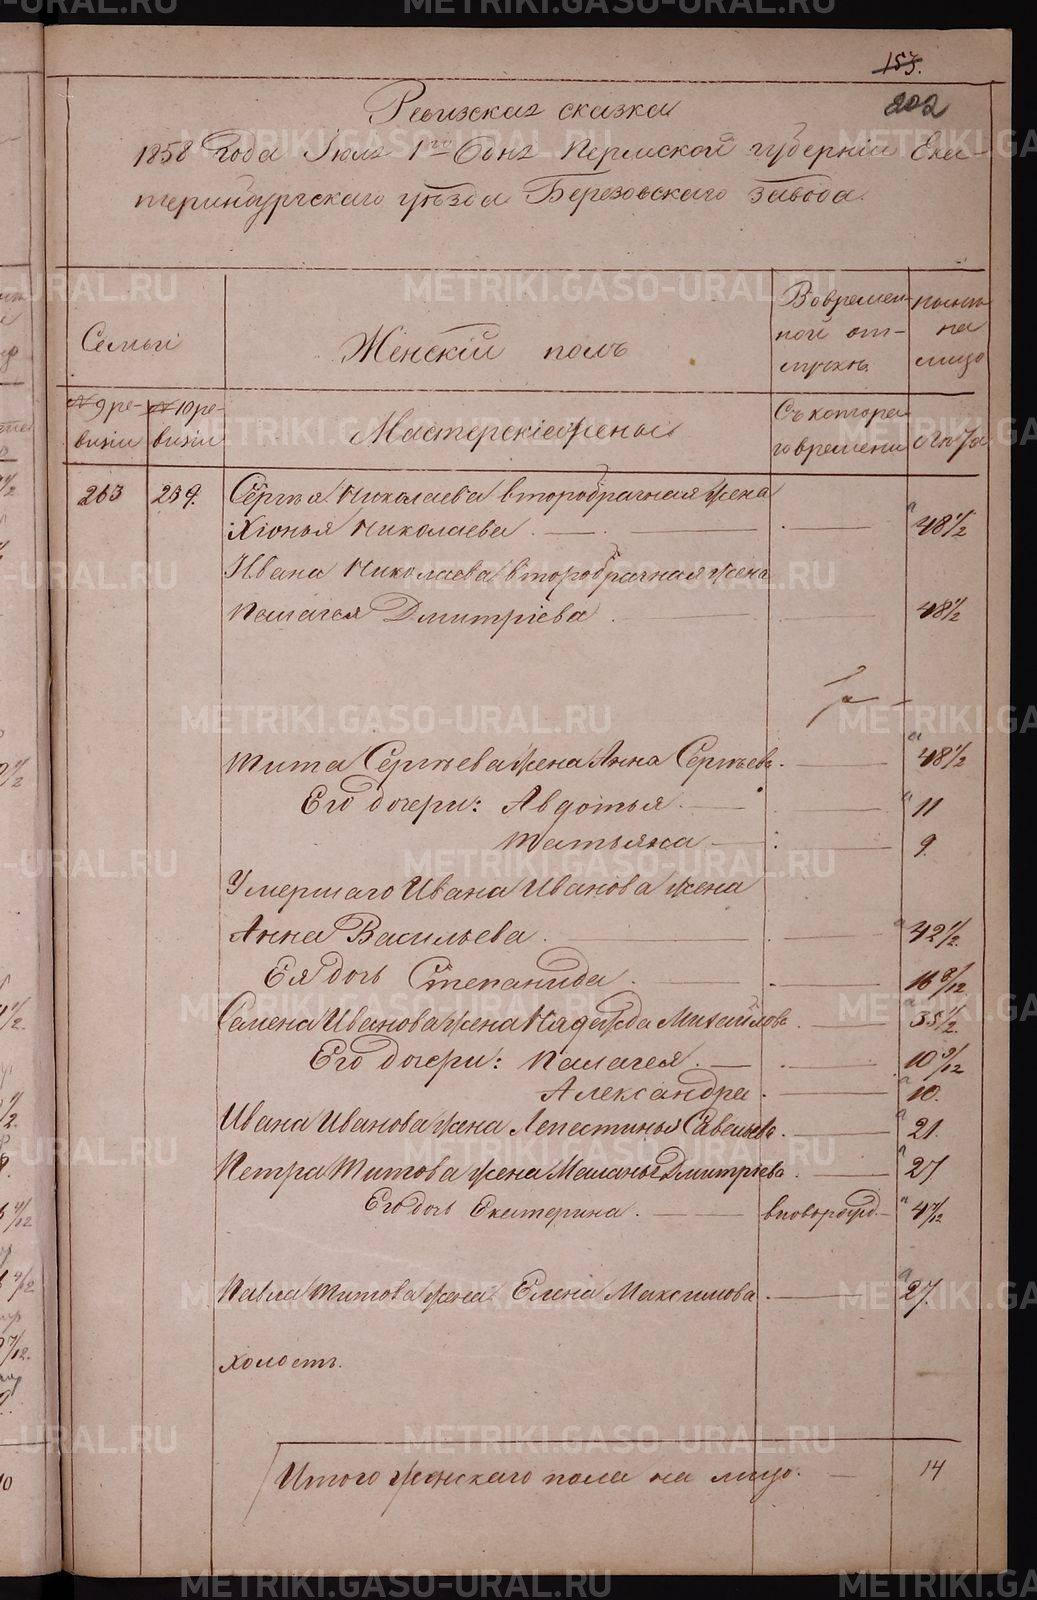 153.
202
Ревизская сказка
1858 года Июля 1го дня Пермской губерніи Ека-
теринбургскаго уѣзда Березовскаго завода.
Семьи
Женскій полъ
Вовремен-
ной от-
лучкѣ
нынѣ
на
лицо
№ 9 ре-
визіи
№ 10 ре-
визіи
Мастерскіе жены
Съ котора-
го времени
лѣта
263 239. Сергѣя Николаева второбрачная жена
Хіонья Николаева 48 1/2
Ивана Николаева второбрачная жена
Пелагея Дмитріева 48 1/2
Тита Сергѣева жена Анна Сергѣева 48 1/2
Его дочери: Авдотья 11
Татьяна 9.
Умершаго Ивана Иванова жена
Анна Васильева 42 1/2
Ея дочь Степанида 16 9/12
Семена Иванова жена Надежда Михайлова 35 1/2.
Его дочери: Палагея 10 9/12
Александра 10.
Ивана Иванова жена Лепестинья Савельева 21.
Петра Титова жена Меланья Дмитріева 27
Его дочь Екатерина. вновьрожд. 4 7/12
Павла Титова жена Елена Максимова 27.
Холостъ.
Итого женскаго пола на лицо. 14
METRIKI.GASO-URAL.RU